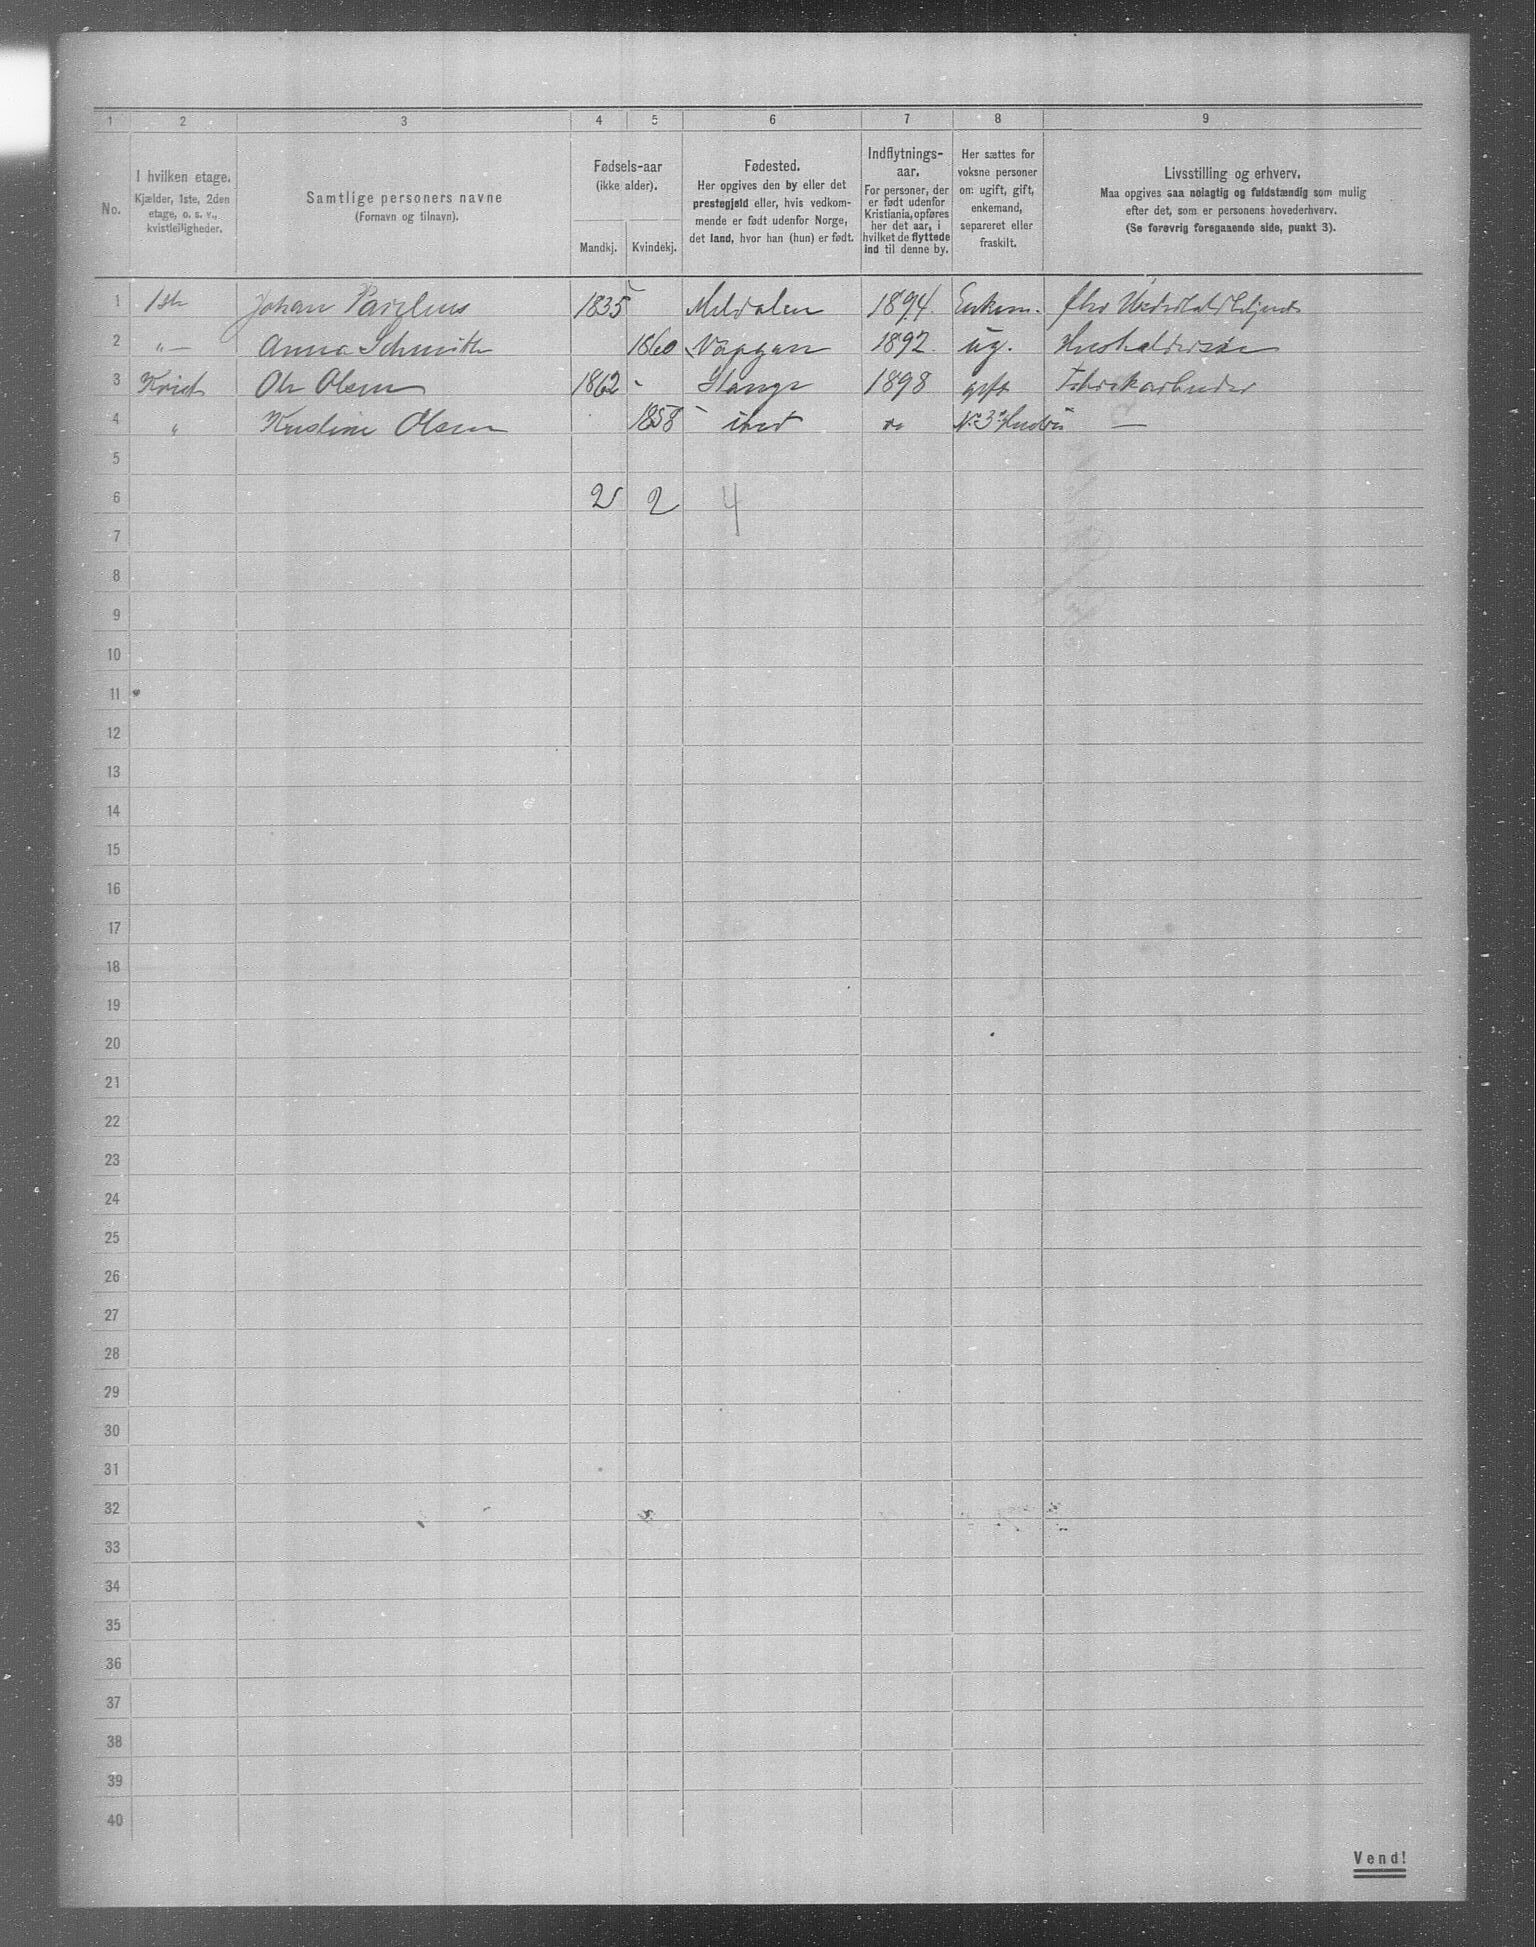 1 2 3 4 5 6 7 8 9
No.
I hvilken etage.
Kjælder, 1ste, 2den
etage, o. s. v.,
kvistleiligheder.
Samtlige personers navne
(Fornavn og tilnavn).
Fødsels-aar
(ikke alder).
Mandkj. Kvindekj.
Fødested.
Her opgives den by eller det
prestegjeld eller, hvis vedkom-
mende er født udenfor Norge,
det land, hvor han (hun) er født.
Indflytnings-
aar.
For personer, der
er født udenfor
Kristiania, opføres
her det aar, i
hvilket de flyttede
ind til denne by.
Her sættes for
voksne personer
om: ugift, gift,
enkemand,
separeret eller
fraskilt.
Livsstilling og erhverv.
Maa opgives saa nøiagtig og fuldstændig som mulig
efter det, som er personens hovederhverv.
(Se forøvrig foregaaende side, punkt 3).
1 1ste Johan Pavelius 1835 Meldalen 1894. Enkem.
2 " — Anna Schmith 1860 1892. ug.
3 Kvist Ole Olsen 1862 - Stange 1898 gift Fabrikarbeider
4 " Kristine Olsen 1858 - ibid No 3s Hustru —
5
6 2 2 4
7
8
9
10
11
12
13
14
15
16
17
18
19
20
21
22
23
24
25
26
27
28
29
30
31
32
33
34
35
36
37
38
39
40
Vend!